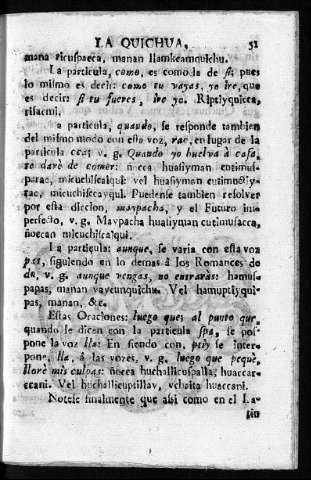 LA QUICHUA, 51
mana ricuspaeca, manan llamkcamquichu.
La particula, como, es como la de si; pues
lo mismo es decir: como tu vayas, yo ire, que
es decir: si tu fueres, ire yo. Riptiyquicca,
risacmi.
a particula, quando, se responde tambien
del mismo modo con esta voz, rac, en lugar de la
particula cca; v. g. Quando yo huelva à casa,
te darè de comer: ñocca huasiyman cutimus-
parac, micuchiscaiqui: vel huasiyman cutimuctiy-
rac, micuchisccayqui. Puedense tambien resolver
por esta diccion, maypacha, y el Futuro im-
perfecto, v. g. Maypacha huasiyman cutimusacca,
ñoccan micuchiscaiqui.
La particula: aunque, se varia con esta voz
pas, siguiendo en lo demas à los Romances de
do, v. g. aunque vengas, no entraràs: hamus-
papas, manan yaycunquichu. Vel hamuptiyqui-
pas, manan, &c.
Estas Oraciones: luego ques al punto que,
quando se dicen con la particula spa, se pos-
pone la voz lla: En siendo con, ptiy se inter-
pone, lla, à las vozes. v. g. luego que pequè,
llorè mis culpas: ñocca huchallicuspalla, huaccar-
ccani. Vel huchallicuptillay, vchaita huaccani.
Notese finalmente que asi como en el La-
tin